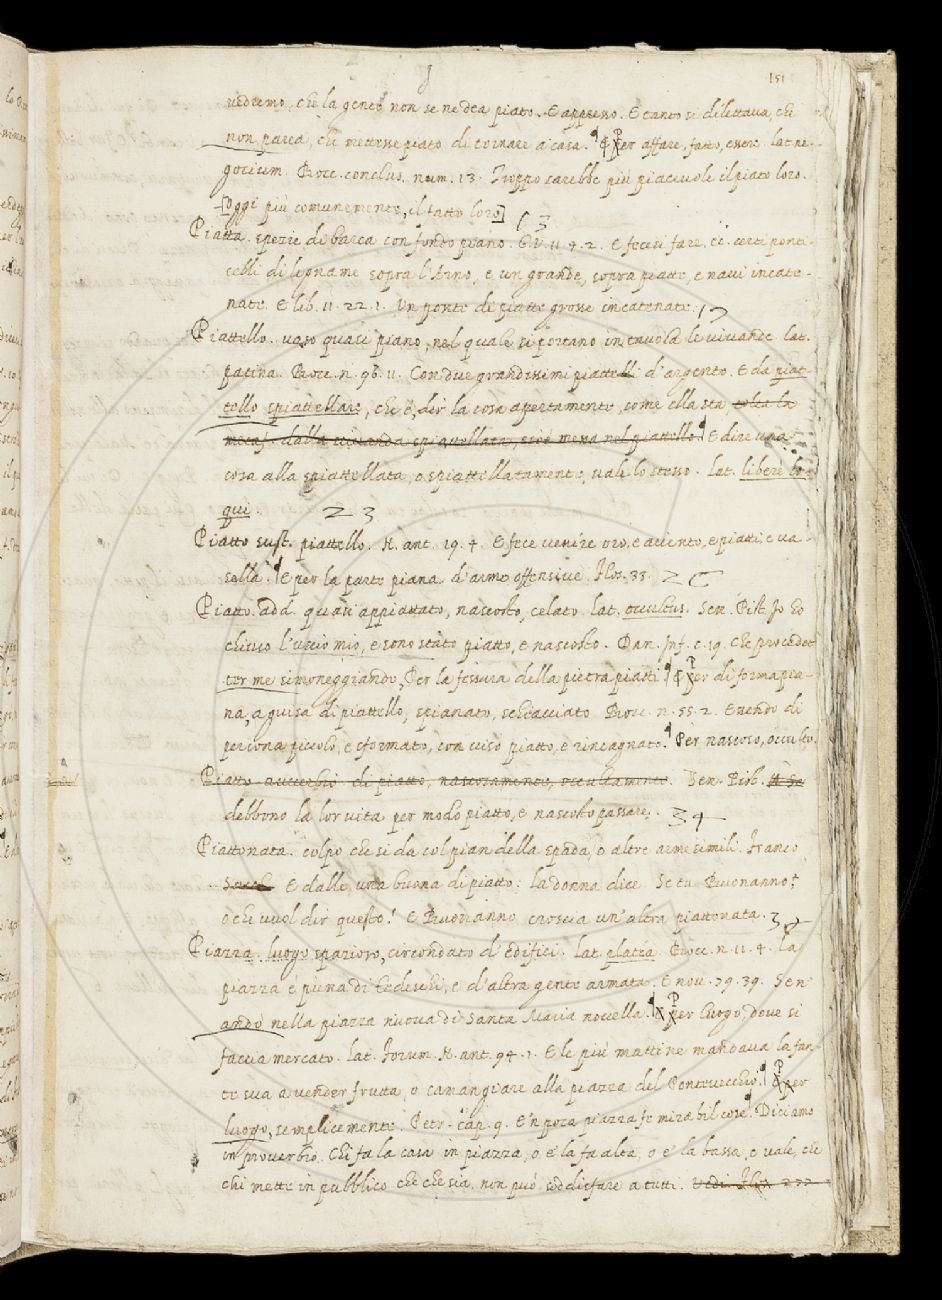 151
vedremo, che la gente non se ne dea piato. E appresso. E tanto si dilettava, che
non parea, che mettesse piato di tornare a casa. ¶ Per affare, fatto, essere. lat. ne-
gocium. Bocc. conclus. num. 13. Troppo sarebbe più piacevole il piato loro.
[Oggi più comunemente, il fatto loro]
13
Piatta. spezie di barca con fondo piano. G.V. 11. 4. 2. E fecesi fare, ec. certi ponti-
celli di legname sopra l'Arno, e un grande, sopra piatte, e navi incate-
nate. E lib. 11. 22. 1. Un ponte di piatte grosse incatenate. 17
Piattello. vaso quasi piano, nel quale si portano in tavola le vivande. lat.
patina. Bocc. n. 96. 11. Con due grandissimi piattelli d'argento. E da piat-
tello spiattellare, che è, dir la cosa apertamente, come ella sta tolta la
dalla vivanda spiattellata, cioè messa nel piattello. E dire una
cosa alla spiattellata, o spiattellatamente, vale lo stesso. lat. liberè lo-
qui. 23
Piatto sust. piattello. N. ant. 19. 4. E fece venire oro, e ariento, e piatti, e va-
sella. E per la parte piana d'arme offensive. Flos. 33. 26
Piatto. add. quasi appiattato, nascosto, celato. lat. occultus. Sen. Pist. Io ho
chiuso l'uscio mio, e sono stato piatto, e nascosto. Dan. Inf. c. 19. Che precedet-
ter me simoneggiando, Per la fessura della pietra piatti. ¶ Per di forma pia-
na, a guisa di piattello, spianato, schiacciato. Bocc. n. 55. 2. Essendo di
persona piccolo, e sformato, con viso piatto, e rincagnato. Per nascoso, occulto.
Piatto avverbio di piatto, nascosamente, occultamente. Sen. Pist.
debbono la lor vita per modo piatto, e nascosto passare. 34
Piattonata. colpo che si da col pian della spada, o altre arme simili. Franco
Sacch. E dalle una buona di piatto: la donna dice. Se tu Buonanno?
o che vuol dir questo? E Buonanno croscia un'altra piattonata.
Piazza. luogo spazioso, circondato d'edifici. lat. platea. Bocc. n. 11. 4. La
piazza è piena di tedeschi, e d'altra gente armata. E nov. 79. 39. Sen'
andò nella piazza nuova di Santa Maria novella. per luogo, dove si
faccia mercato. lat. forum. N. ant. 94. 1. E le più mattine mandava la fan-
te sua a vender frutta, o camangiare alla piazza del Pontevecchio. per
luogo, semplicemente. Petr. cap. 9. E'n poca piazza fe mirabil cose. Diciamo
in proverbio. Chi fa la casa in piazza, o e' la fa alta, o e' la bassa, e vale, che
chi mette in pubblico che che sia, non può soddisfare a tutti. Vedi Flos 277